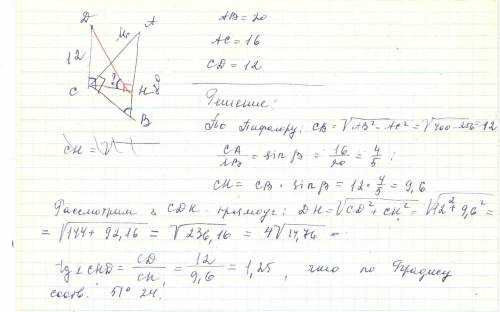 D
A
M
12
C
?
H
B
β
AB = 20
AC = 16
CD = 12
Решение:
По Пифагору: CB = √AB² - AC² = √400 - 256 = 12
CA/AB = sin β = 16/20 = 4/5 ;
CH = CB · sin β = 12 · 4/5 = 9,6
CH =
Рассмотрим △ CDH - прямоуг: DH = √CD² + CH² = √12² + 9,6² =
= √144 + 92,16 = √236,16 = 4√14,76 =
tg ∠CHD = CD/CH = 12/9,6 = 1,25 , что по Брадису
соотв. 51° 24'.